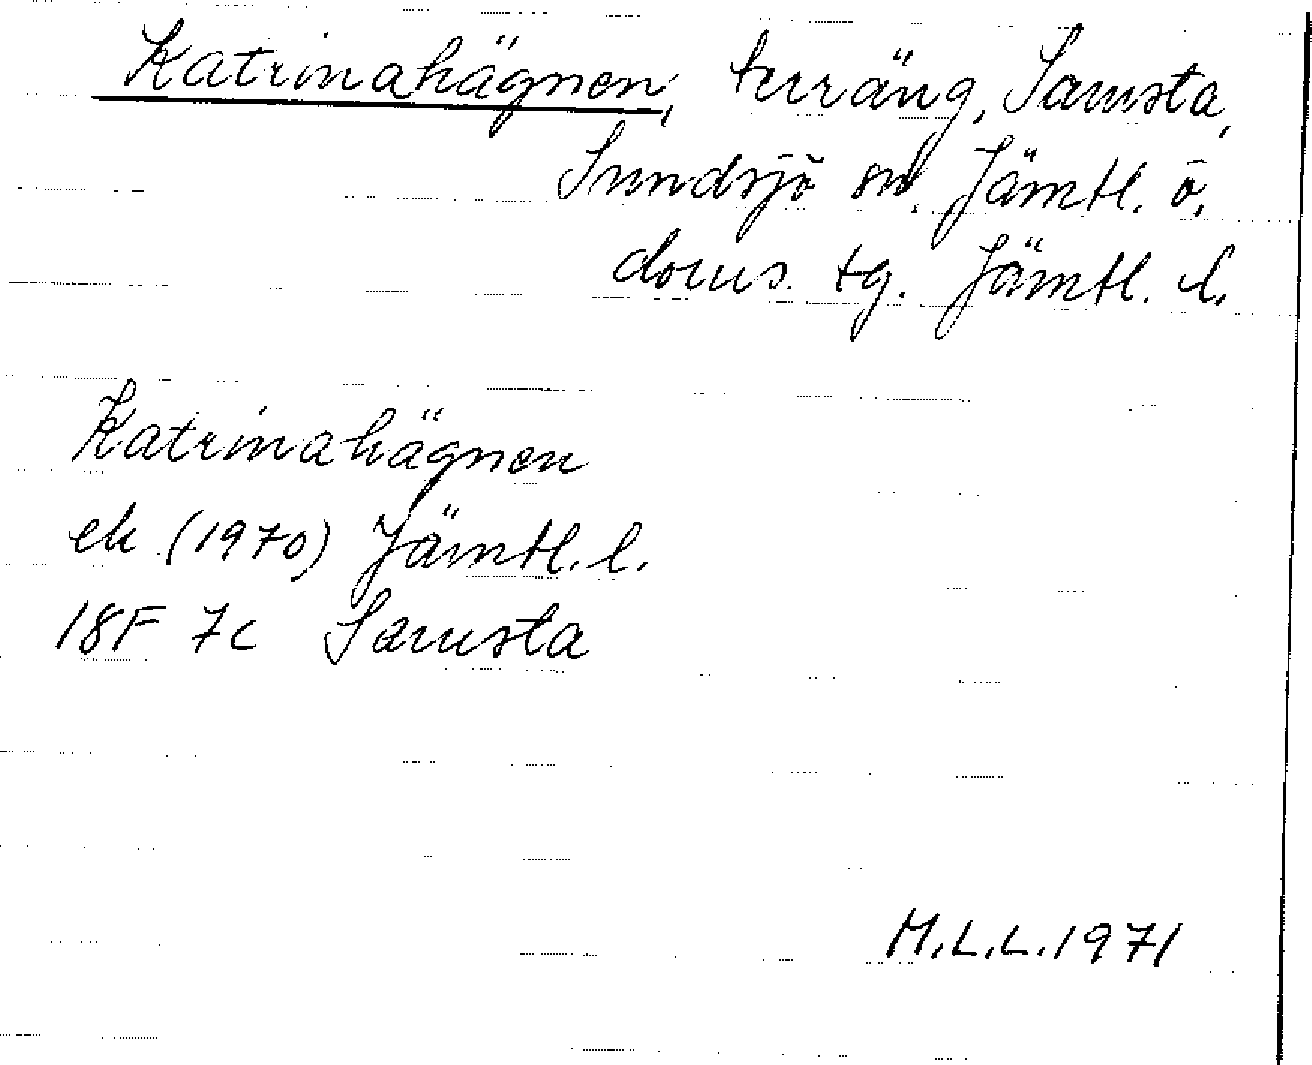 Katrinahägnen, terräng, Samsta,
Sundsjö sn. Jämtl. ö.
doms. tg. Jämtl. l.
Katrinahägnen
ek (1970) Jämtl. l.
18F 7c Samsta
M.L.L. 1971